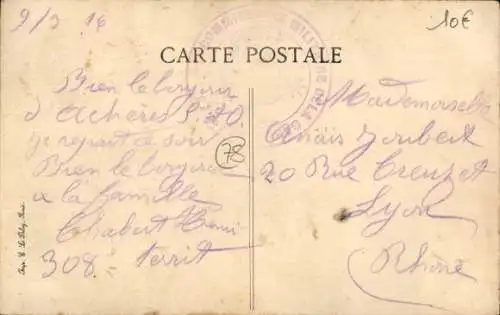 9/3 16
10€
COMMI MILITAIRE DE LA GA
CARTE POSTALE
Bien le bonjour
d'Achères S. & O.
je repart ce soir
Bien le bonjour
a la famille
Chabert Henri
308e territ
78
Mademoiselle
Anaïs Joubert
20 Rue Creuzet
Lyon
Rhône
Imp. E. Le Deley, Paris